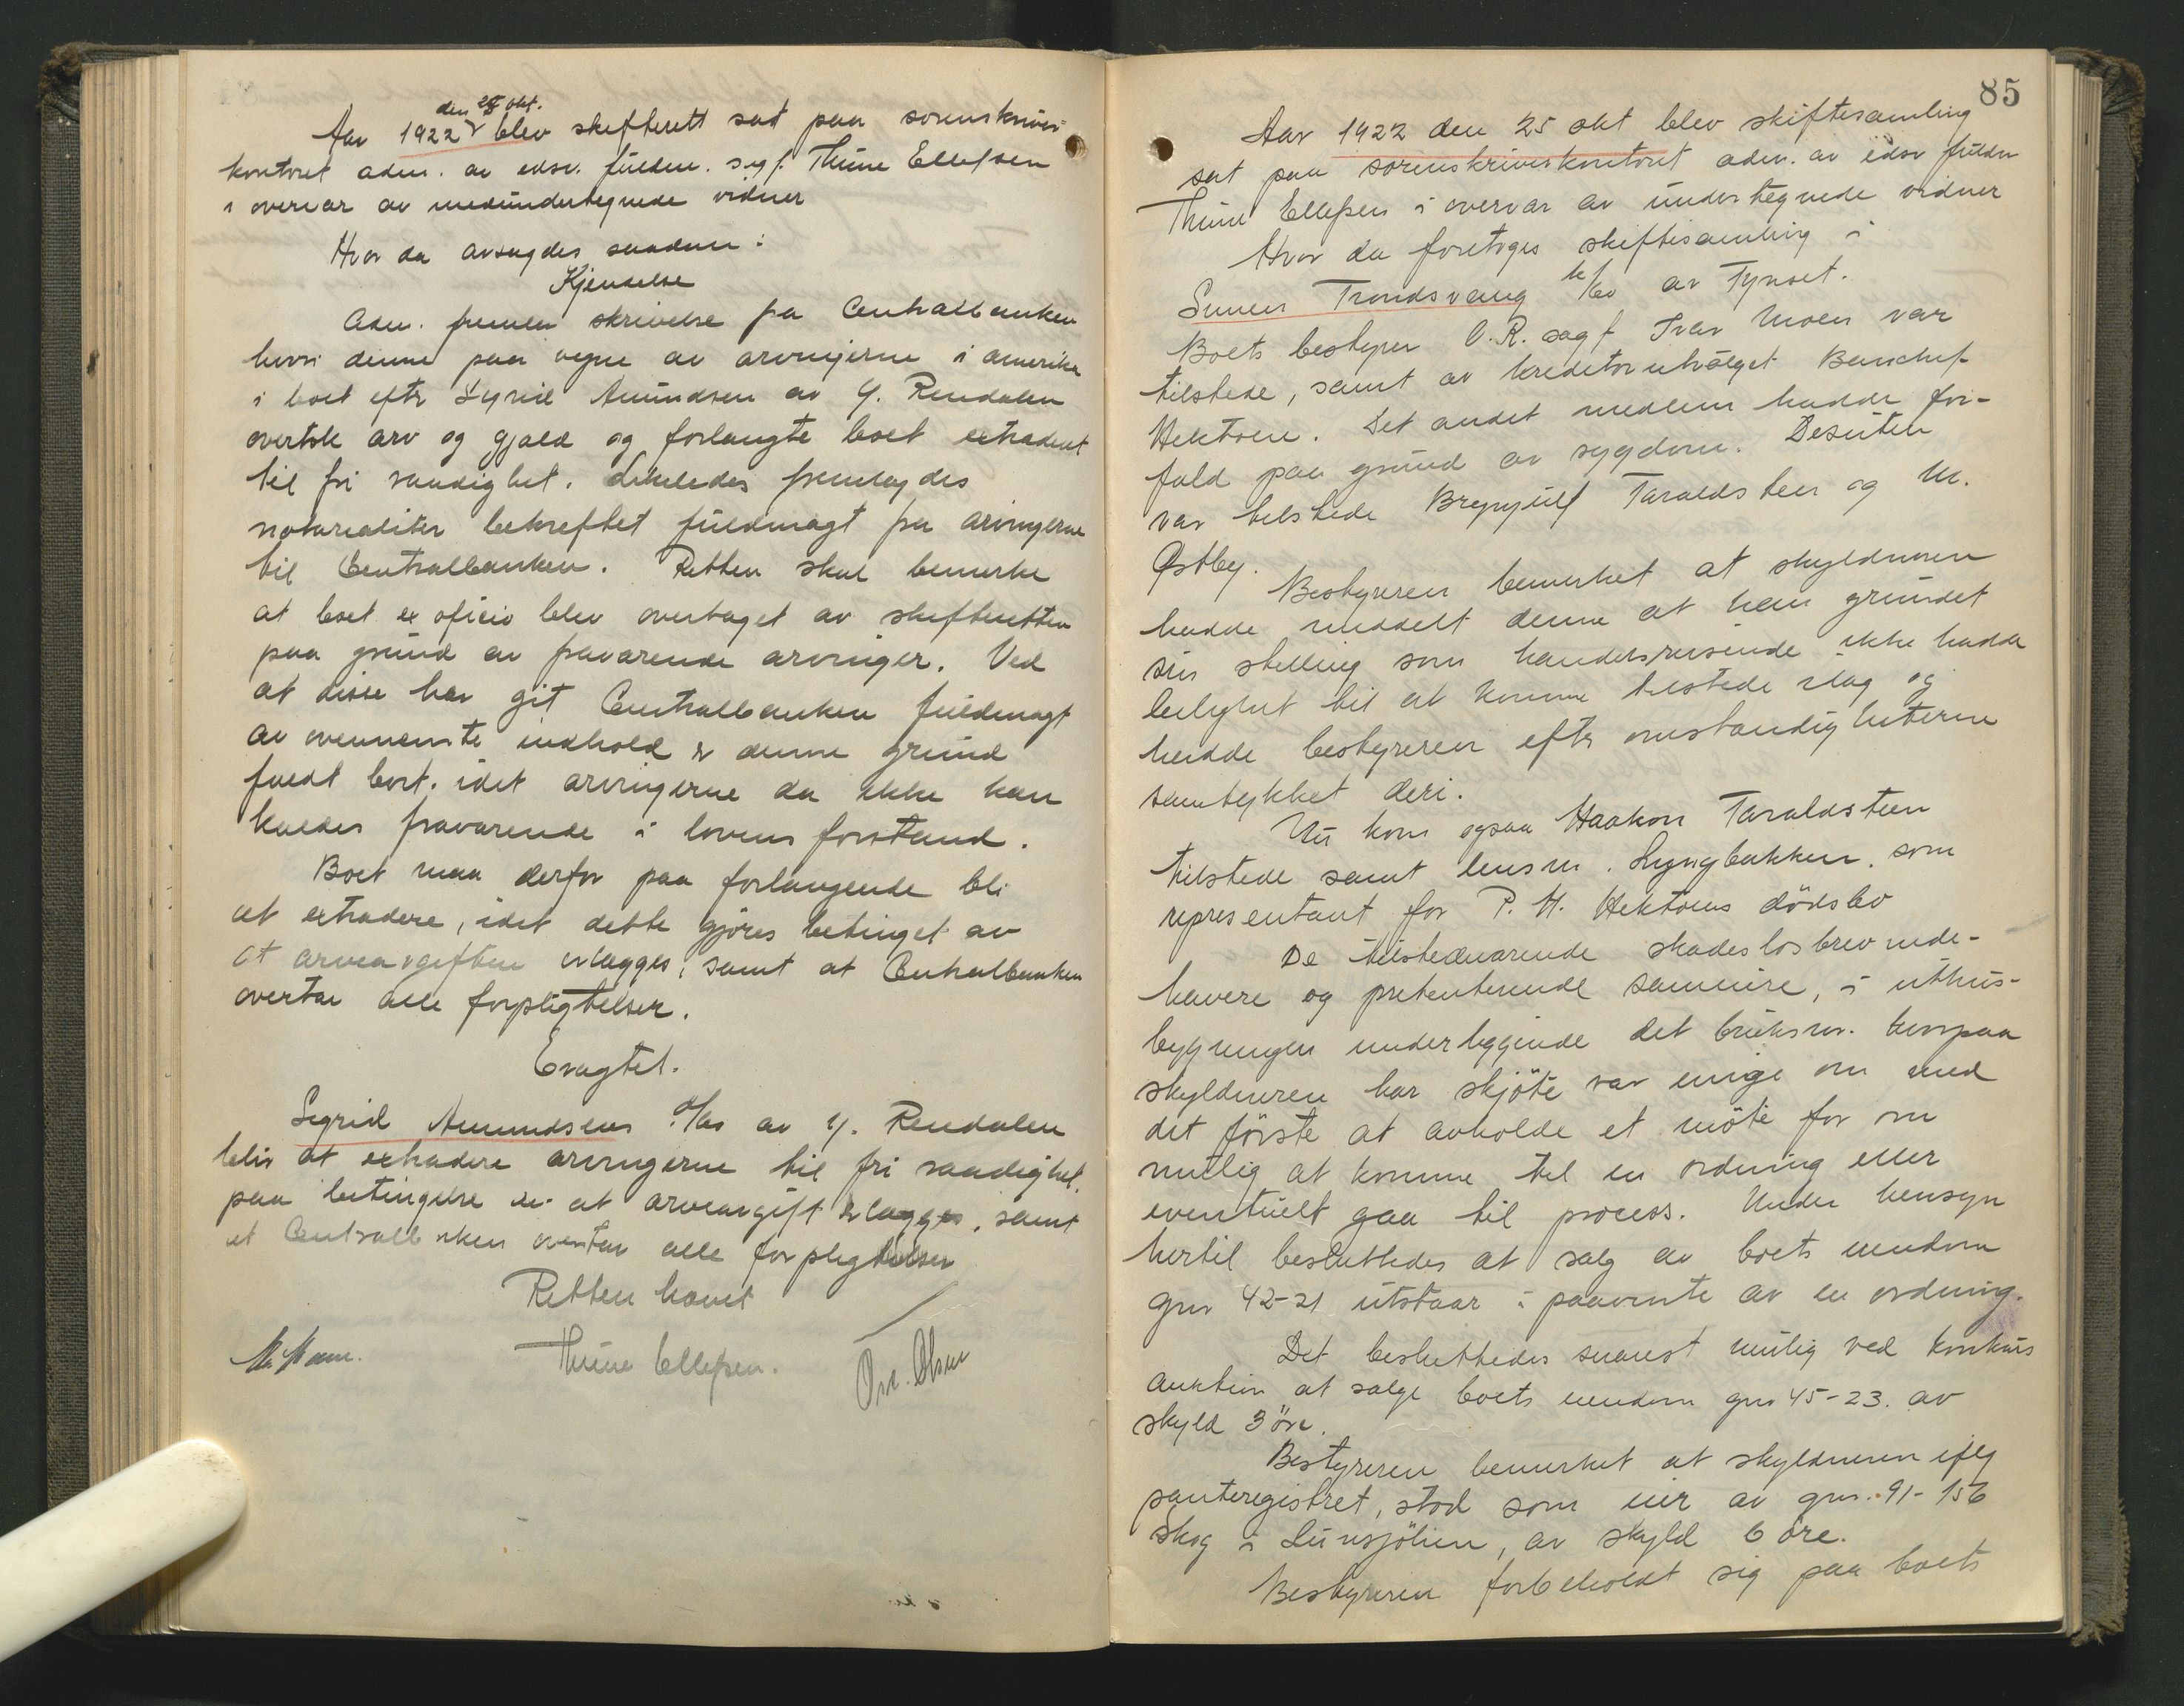 den 25 okt.
Aar 1922 blev skifterett sat paa sorenskriver-
kontoret adm. av edsv. fuldm. sagf. Thine Ellefsen
i overvær av medundertegnede vidner
Hvor da avsagdes saadan:
Kjendelse
Adm. fremla skrivelse fra Centralbanken
hvori denne paa vegne av arvingerne i amerika
i boet efter Sigrid Amundsen av Y. Rendalen
overtok arv og gjæld og forlangte boet extradert
til fri raadighet. Likeledes fremlagdes
notarialiter bekreftet fuldmagt fra arvingerne
til Centralbanken. Retten skal bemerke
at boet ex oficio blev overtaget av skifteretten
paa grund av fraværende arvinger. Ved
at disse har git Centralbanken fuldmagt
av ovennevnte indhold er denne grund
faldt bort, idet arvingerne da ikke kan
kaldes fraværende i lovens forstand.
Boet maa derfor paa forlangende bli
at extradere, idet dette gjøres betinget av
at arveavgiften erlægges, samt at Centralbanken
overtar alle forpligtelser.
Eragtet.
Sigrid Amundsens d/bo av Y. Rendalen
blir at extradere arvingerne til fri raadighet,
paa betingelse av at arveavgift erlægges, samt
at Centralbanken overtar alle forpligtelser
Retten hævet
Thine Ellefsen.
Osc. Olsen
85
Aar 1922 den 25 okt blev skiftesamling
sat paa sorenskriverkontoret adm. av edsv fuldm
Thine Ellefsen i overvær av undertegnede vidner
Hvor da foretoges skiftesamling i
Simen Trondsvang k/bo av Tynset.
Boets bestyrer O.R. sagf Ivar Moen var
tilstede, samt av kreditorutvalget Bankchef
Hektoen. Det andet medlem hadde for-
fald paa grund av sygdom. Desuten
var tilstede Brynjulf Taraldsteen og M.
Østby.
Bestyreren bemerket at skyldneren
hadde meddelt denne at han grundet
sin stilling som handelsreisende ikke hadde
leilighet til at komme tilstede idag og
hadde bestyreren efter omstændigheterne
samtykket deri.
Nu kom ogsaa Haakon Taraldsteen
tilstede samt lensm. Lyngbakken, som
representant for P. H. Hektoens dödsbo
De tilstedeværende skadeslösbrevinde-
havere og pretenterende sameiere, i uthus-
bygningen underliggende det bruksnr. hvorpaa
skyldneren har skjöte var enige om med
det förste at avholde et möte for om
mulig at komme til en ordning eller
eventuelt gaa til process. Under hensyn
hertil besluttedes at salg av boets eiendom
gnr 42-21 utstaar i paavente av en ordning.
Det besluttedes snarest mulig ved konkurs
auktion at sælge boets eiendom gnr 45-23. av
skyld 3 öre.
Bestyreren bemerket at skyldneren iflg
panteregistret, stod som eier av gnr. 91-156
skog i Lunsjölien, av skyld 6 öre.
Bestyreren forbeholdt sig paa boets